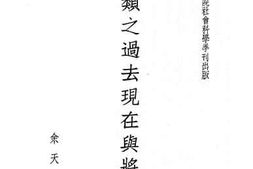 院社會科學季刊出版
類之過去現在與將
余天